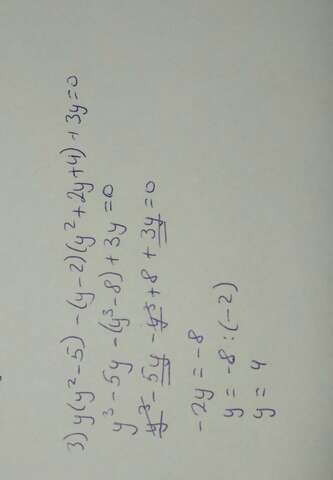 3) y(y²-5) - (y-2)(y²+2y+4) + 3y=0
y³-5y-(y³-8)+3y=0
y³-5y-y³+8+3y=0
-2y=-8
y=-8:(-2)
y=4